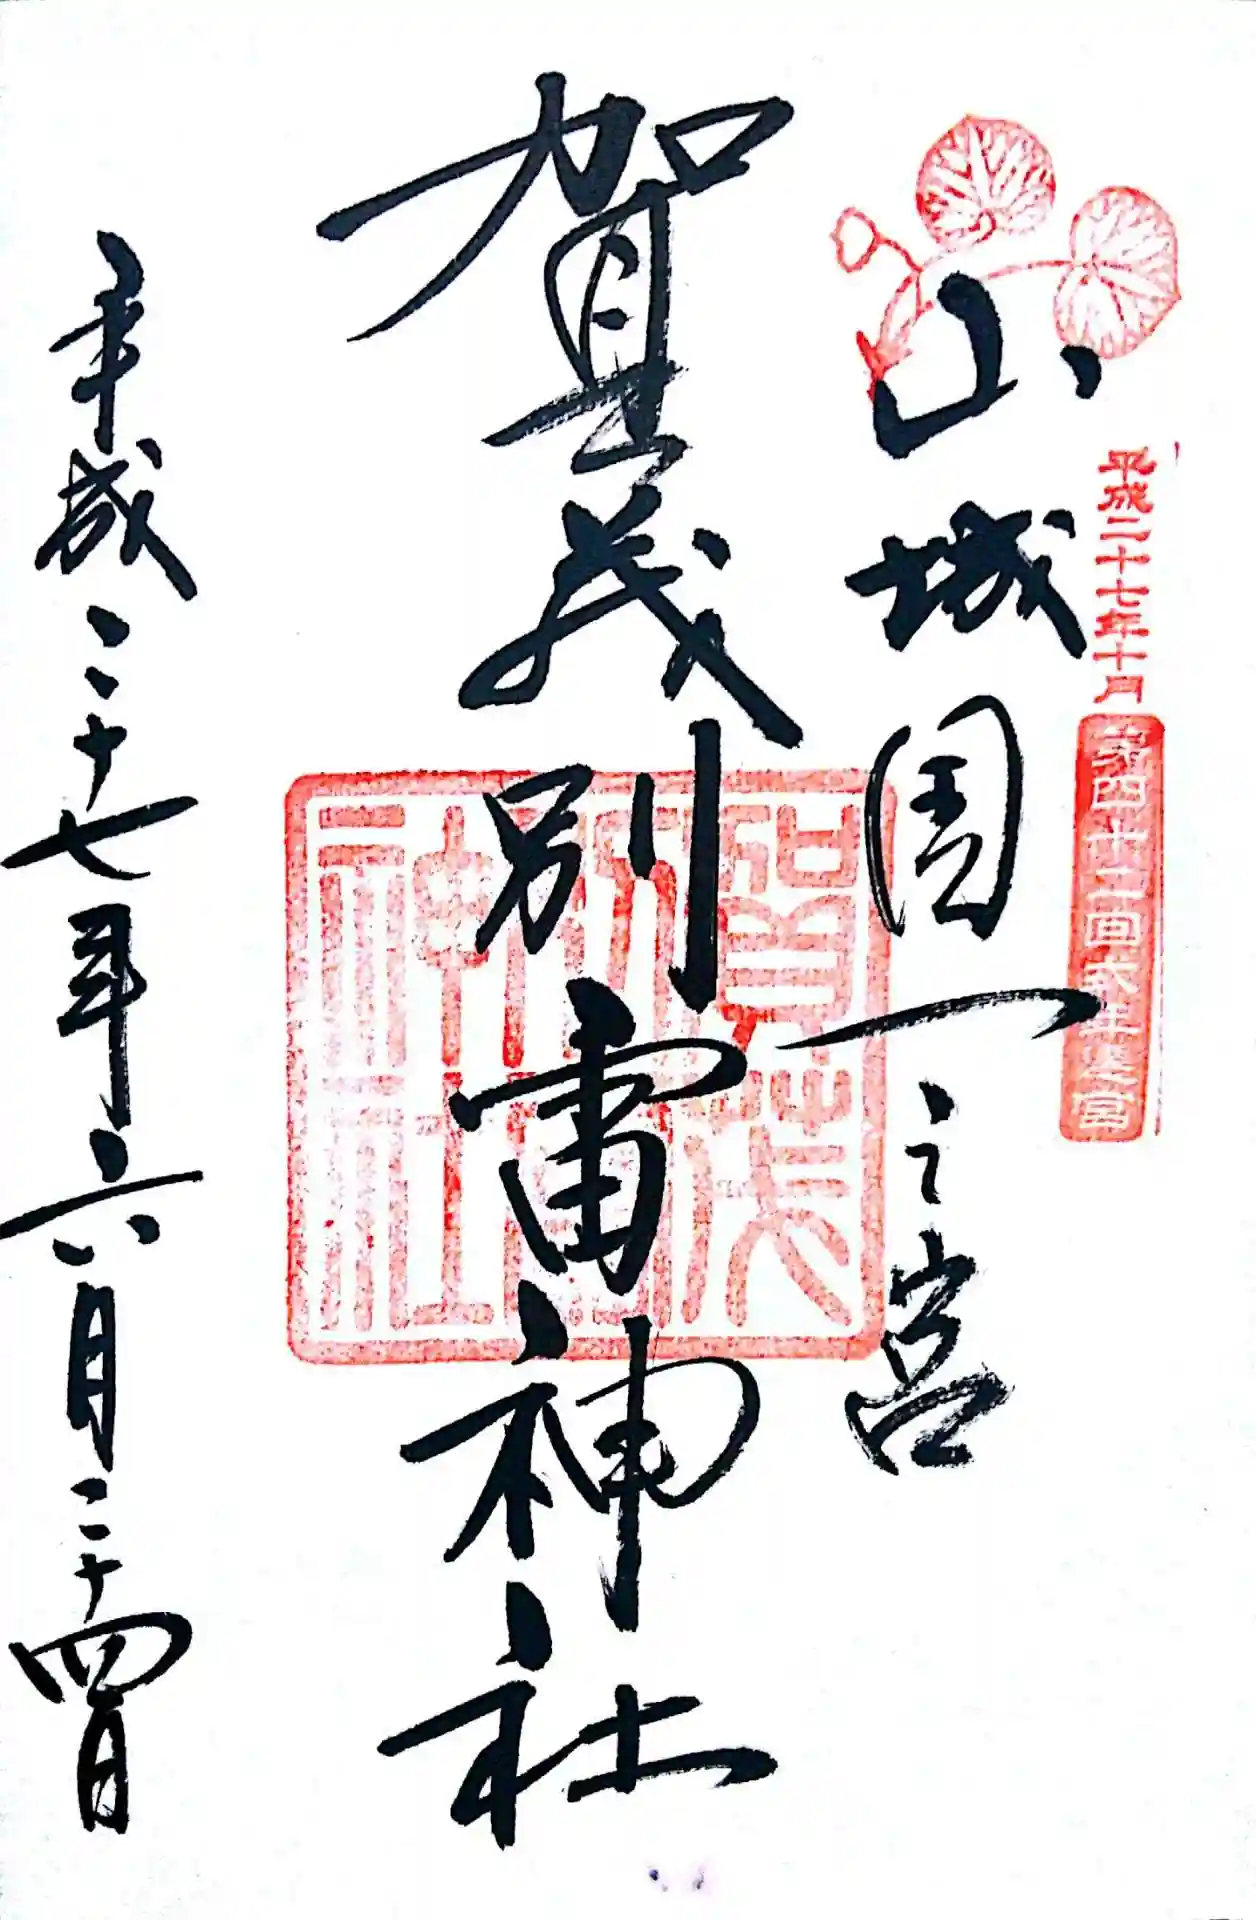 平成二十七年十月
第四十二回式年遷宮
山城国一之宮
賀茂別雷神社
賀茂別雷神社
平成二十七年六月二十四日